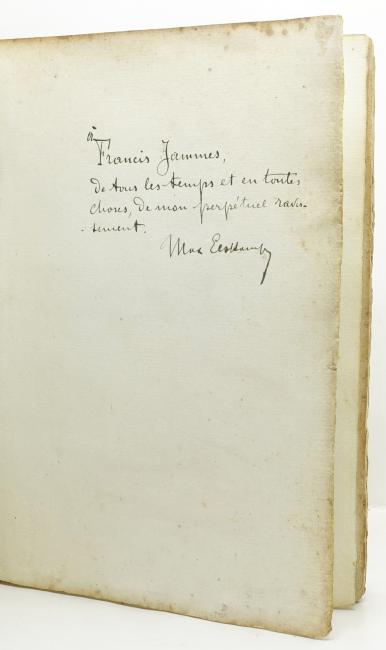 à
Francis Jammes,
de tous les temps et en toutes
choses, de mon perpétuel ravis-
-sement.
Max Elskamp